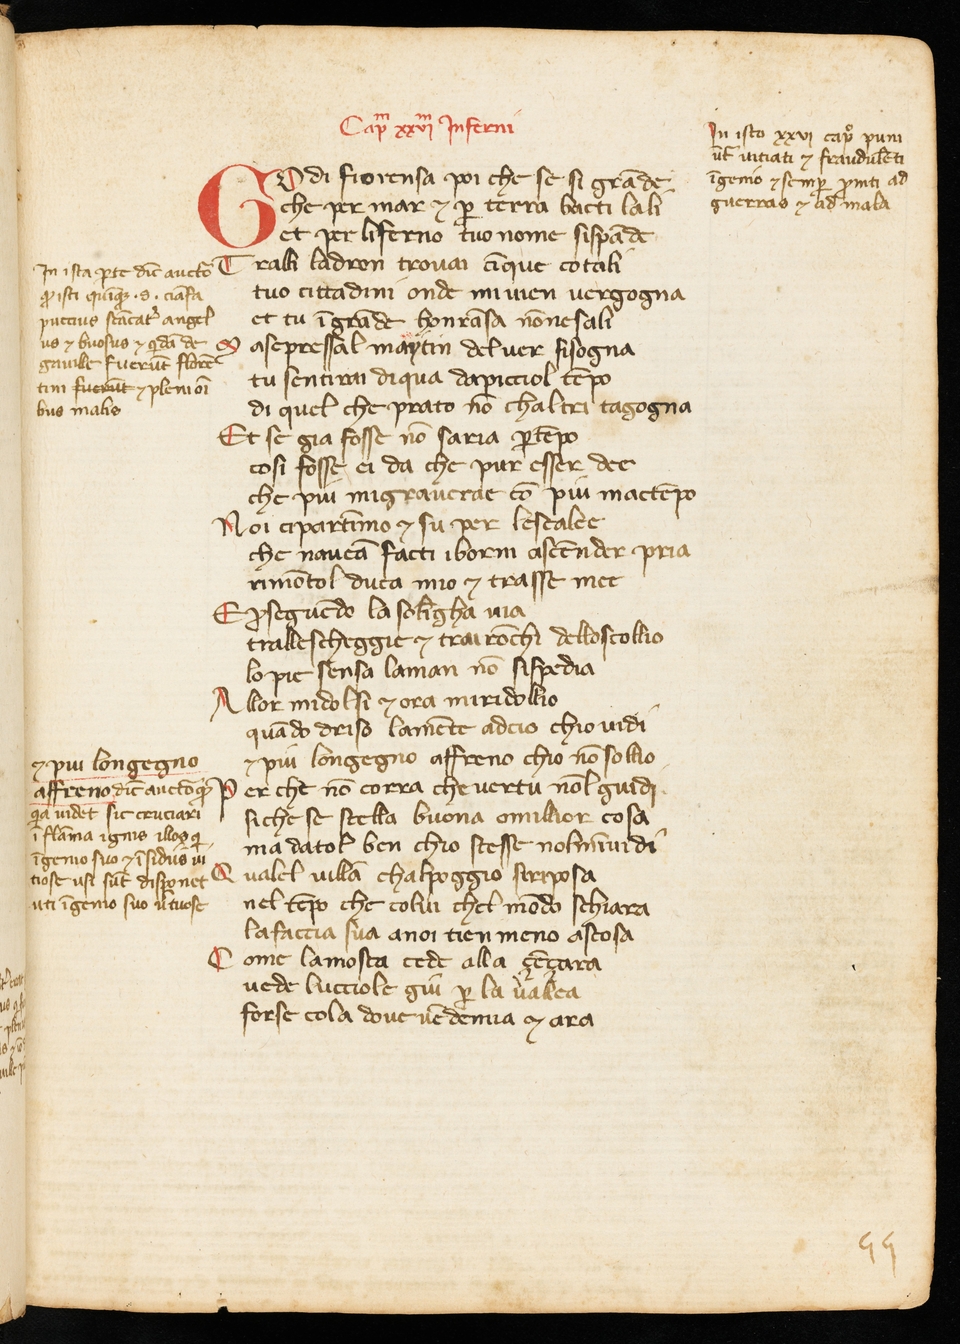 Cap̄m xxvjm̄ Inferni
In isto xxvi capo puni
ūt uitiati ⁊ fraudulēti
īgenio ⁊ semp̄ p̄mti ad
guerras ⁊ ad mala
GOdi fiorensa poi che se si grāde
che per mar ⁊ p̄ terra bacti lali
et per liferno tuo nome sispāde
Tralli ladron trouai cīque cotali
tuo cittadini onde mi uien uergogna
et tu īgrāde honrāsa nōne sali
Ma se pressal maytin del uer sisogna
tu sentirai di qua da picciol tēpo
di quel che prato nō chaltri tagogna
Et se gia fosse nō saria p̄ tēpo
cosi fosse ei da che pur esser dee
che piu mi grauerae cō piu mactēpo
Noi ci partīmo ⁊ su per lescalee
che naueā facti iborni ascēnder pria
rimōtol duca mio ⁊ trasse mee
E p̄seguēdo la solīgha uia
tralle scheggie ⁊ trai rōchi dello scollio
lo pie sensa la man nō si spedia
Allor mi dolsi ⁊ ora mi ridollio
quādo driso lamēte ad cio chio uidi
⁊ piu longegno affreno chio nō sollio
Per che nō corra che uertu nōl guidi
si che se stella buona o millior cosa
ma datol ben chio stesse nol mīuidi
Qualel uillā chal poggio si riposa
nel tēpo che colui chel mōdo schiara
la faccia sua a noi tien meno ascosa
Come la mosca cede alla çēçara
uede lucciole giu p̄ la uallea
forse cola doue uēdemia ⁊ ara
In ista p̄te dic̄ auctor
q̄ isti quinq̄ .s. ciāfa
puccius sciācat' angel
us ⁊ buosus ⁊ q̄dā de
gauille fuerūt florē
tini fuerūt ⁊ pleni oī
bus malis
⁊ piu longegno
affreno dic̄ auctor q̄
q̄a uidet sic cruciari
ī flāma ignis illos q̄
īgenio suo ⁊ īsidiis ui
tiose usi sūt disponet
uti īgenio suo ūtuose
99